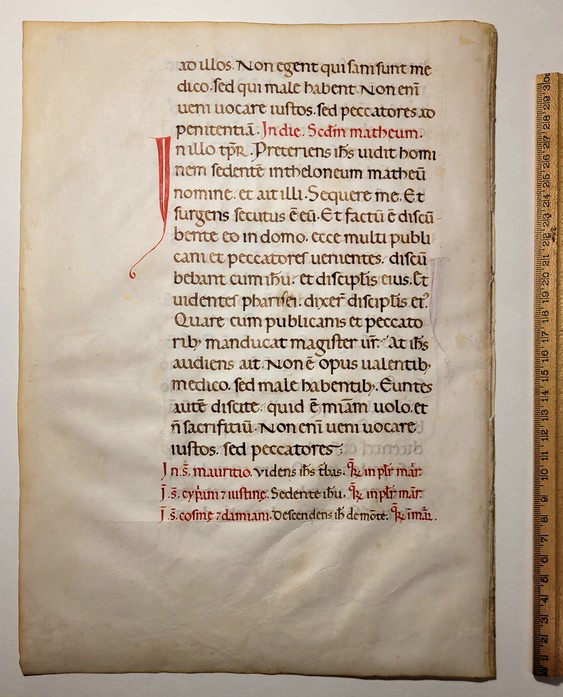 ad illos. Non egent qui sani sunt me
dico. sed qui male habent. Non eni̅
veni vocare iustos. sed peccatores ad
penitentia̅. In die. Sedm̅ matheum.
In illo tp̅R. Preteriens ih̅s vidit homi
nem sedente̅ intheloneum matheu̅
nomine. et ait illi. Sequere me. Et
surgens secutus e̅ eu̅. Et factu̅ e̅ discu̅-
bente eo in domo. ecce multi publi
cani et peccatores venientes. discu̅
bebant cum ih̅u. et discipl̅is eius. Et
videntes pharisei. dixer̅ discipl̅is ei⁹.
Quare cum publicanis et peccato
rib; manducat magister vr̅. At ih̅s
audiens ait. Non e̅ opus valentib;
medico. sed male habentib;. Euntes
aute̅ discite. quid e̅ mi̅am volo. et
n̅ sacrificiu̅. Non eni̅ veni vocare
iustos. sed peccatores;
In. s̅. mauritio. Videns ih̅s t̅bas. in pl̅r mar̅
I̅. s̅. cyp̅ani ⁊ iustine̜. Sedente ih̅u. in pl̅r mar̅
I̅. s̅. cosme̜ ⁊ damiani. Descendens ih̅s de mo̅te. i̅ mar̅.
2 3 4 5 6 7 8 9 10 11 12 13 14 15 16 17 18 19 20 21 22 23 24 25 26 27 28 29 30